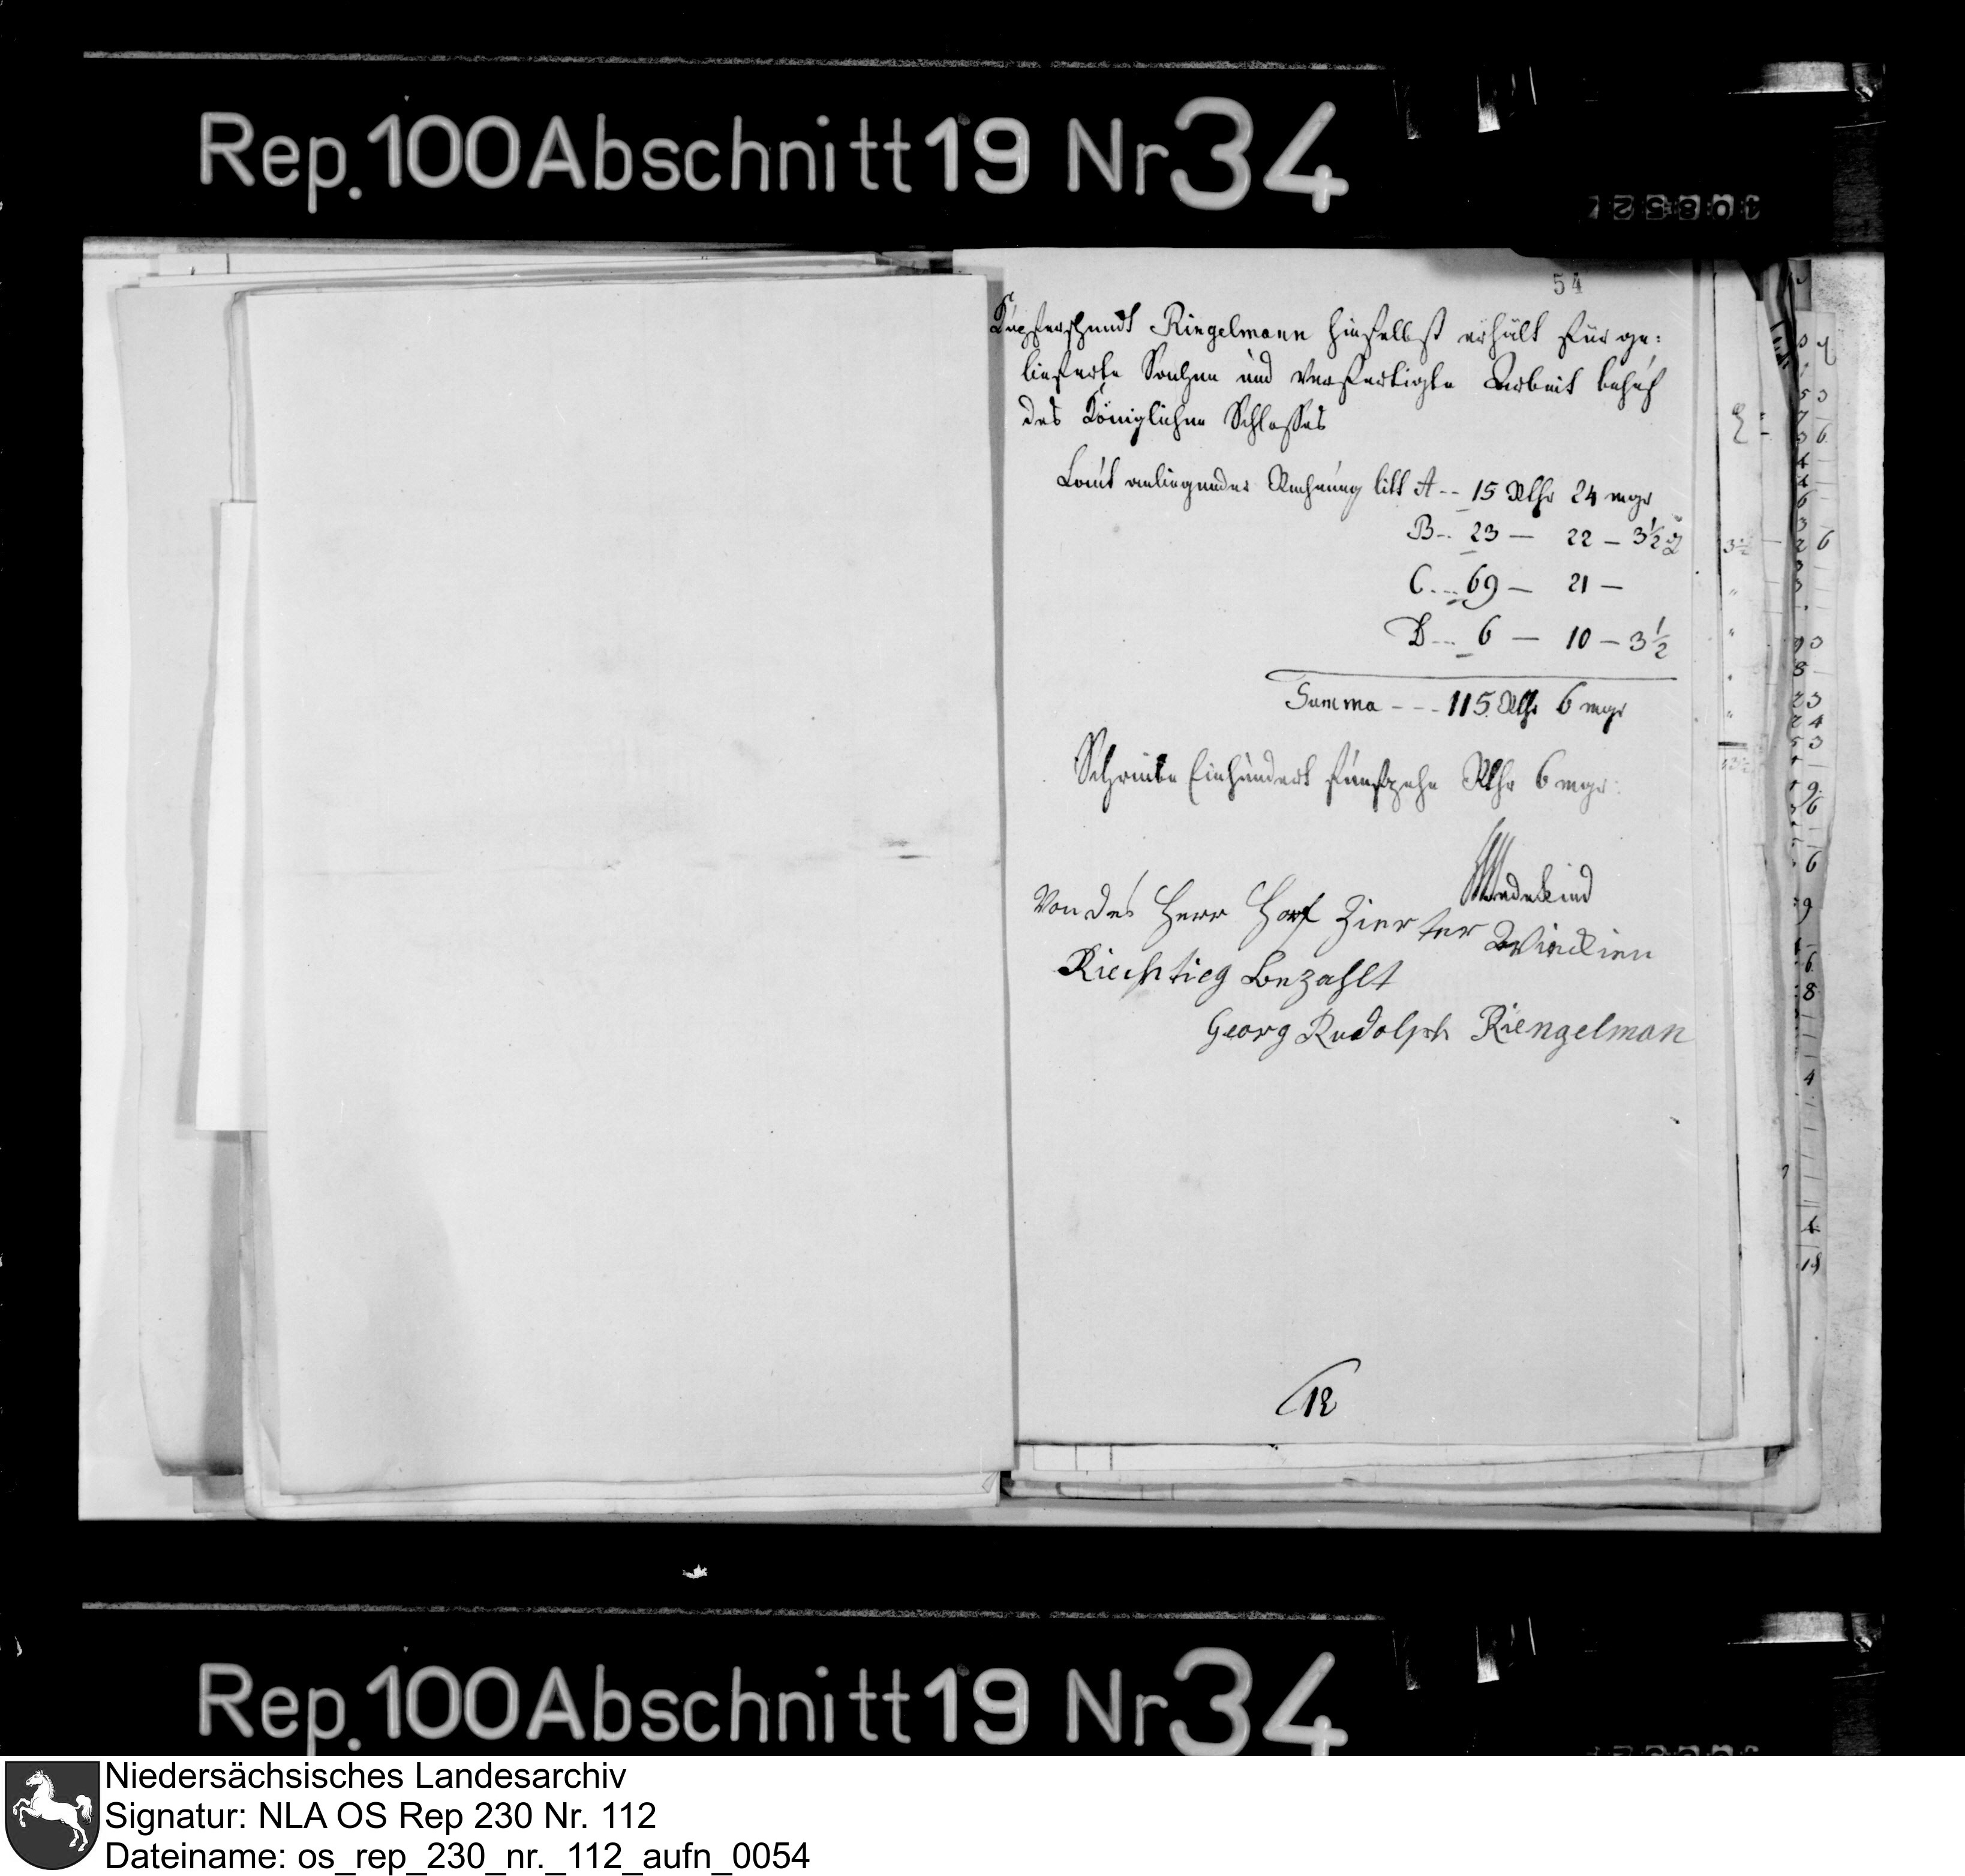 Rep. 100 Abschnitt 19 Nr 34
54
Kupferschmidt Ringelmann hieselbst erhält für ge:
lieferte Sachen und verfertigte Arbeit behuf
des Königlichen Schlosses
Laut anliegender Rechnung litt A -- 15 Rthr 24 mgr
B -- 23 — 22 — 3½ ₰
C ... 69 — 21 —
D ... 6 — 10 — 3½
Summa - - - 115 Rthr 6 mgr
Schreibe Einhundert funfzehn Rthr 6 mgr:
Wedekind
Von des Herr Hoff Zierter
Riechtieg Bezahlt
Georg Rudolph Riengelman
12
Rep. 100 Abschnitt 19 Nr 34
Niedersächsisches Landesarchiv
Signatur: NLA OS Rep 230 Nr. 112
Dateiname: os_rep_230_nr._112_aufn_0054